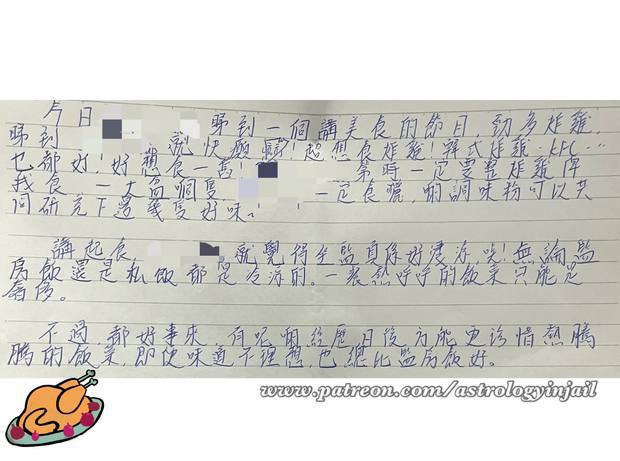 今日 睇到一個講美食的節目，勁多炸雞，
睇到 就快癲嘞！超想食炸雞！韓式炸雞、KFC…
也都好！好想食一舊！ 第時一定要整炸雞俾
我食，一大盆嗰隻 一定食曬，啲調味粉可以共
同研究下邊幾隻好味。
講起食， 就覺得坐監真係好淒涼呢！無論監
房飯還是私飯都是冷冰的。一餐熱呼呼的飯菜只能是
奢侈。
不過，都好事來，有呢啲經歷日後方能更珍惜熱騰
騰的飯菜，即使味道不理想，也總比監房飯好。
www.patreon.com/astrologyinjail